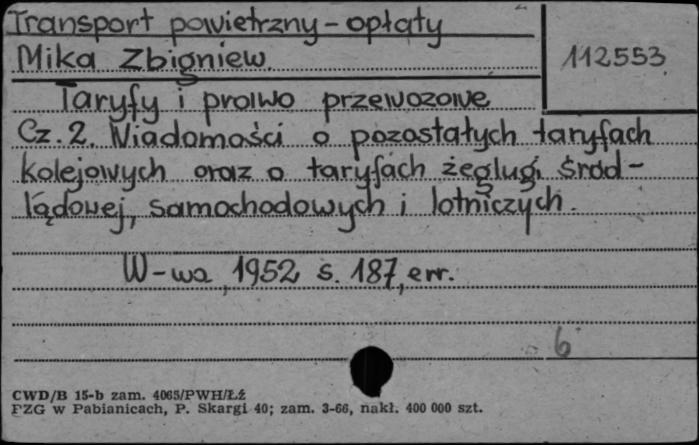 Transport powietrzny - opłaty
Mika Zbigniew
112553
Taryfy i prawo przewozowe
Cz. 2. Wiadomości o pozostałych taryfach
kolejowych oraz o taryfach żeglugi śród-
lądowej, samochodowych i lotniczych.
W-wa, 1952, s. 187, err.
6
CWD/B 15-b zam. 4065/PWH/Łź
PZG w Pabianicach, P. Skargi 40; zam. 3-66, nakł. 400 000 szt.